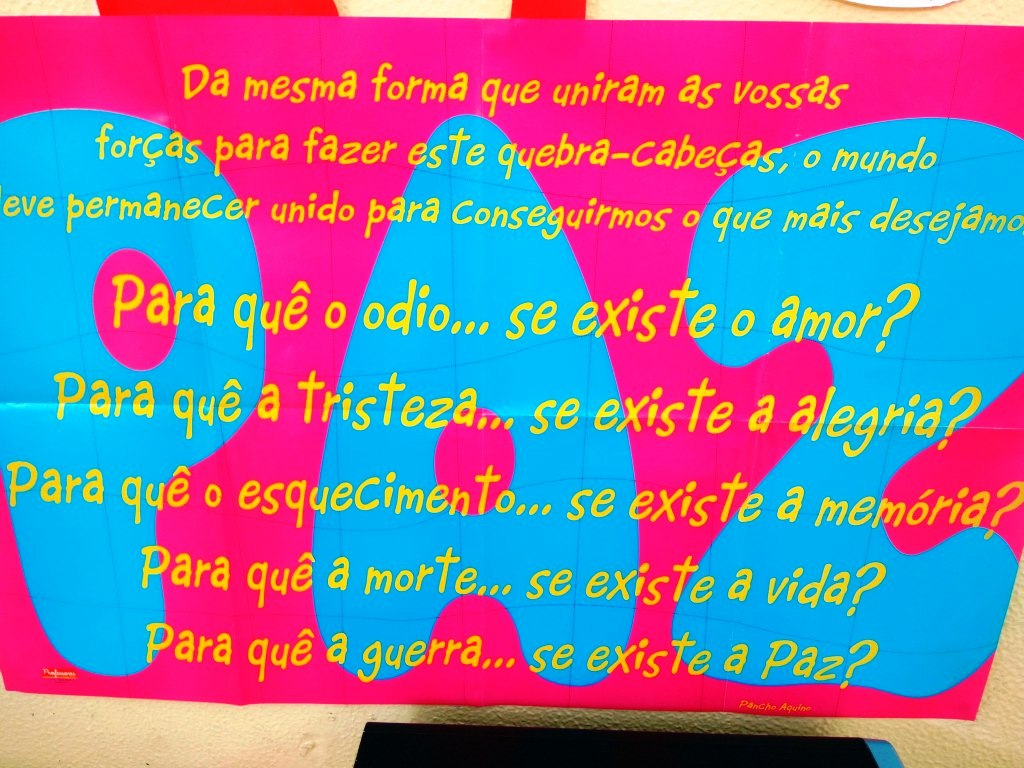 Da mesma forma que uniram as vossas
forças para fazer este quebra-cabeças, o mundo
deve permanecer unido para conseguirmos o que mais desejamos
Para quê o odio... se existe o amor?
Para quê a tristeza... se existe a alegria?
Para quê o esquecimento... se existe a memória?
Para quê a morte... se existe a vida?
Para quê a guerra... se existe a Paz?
PAZ
Pancho Aquino